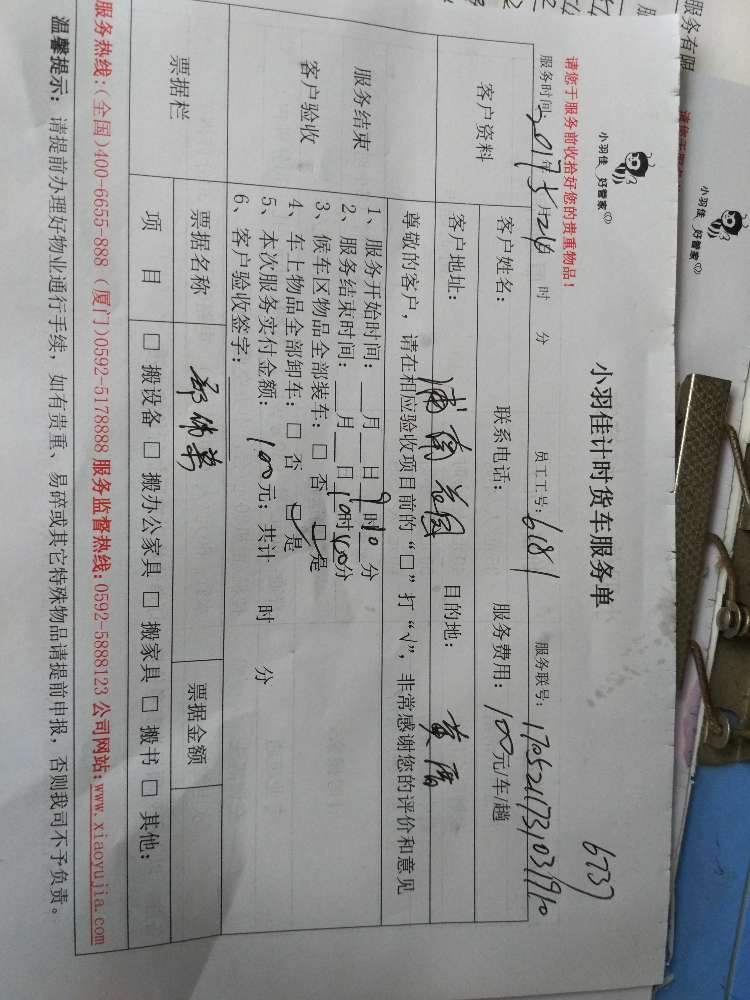 小羽佳 好管家
小羽佳计时货车服务单
6737
请您于服务前收拾好您的贵重物品！
服务时间: 2017年5月 时 分 员工工号: 6181 服务联号:
客户资料
客户姓名: 联系电话: 服务费用: 100元/车/趟
客户地址: 花园 目的地: 黄厝
服务结束
客户验收
尊敬的客户，请在相应验收项目前的“□”打“√”，非常感谢您的评价和意见
1、服务开始时间: 月 日 9时10分
2、服务结束时间: 月 日 10时40分
3、候车区物品全部装车: □ 否 □ 是
4、车上物品全部卸车: □ 否 □ 是
5、本次服务实付金额: 100元; 共计 时 分
6、客户验收签字:
票据栏
票据名称 票据金额
项 目 □ 搬设备 □ 搬办公家具 □ 搬家具 □ 搬书 □ 其他:
服务热线:(全国)400-6655-888 (厦门)0592-5178888 服务监督热线:0592-5888123 公司网站:www.xiaoyujia.com
温馨提示: 请提前办理好物业通行手续，如有贵重、易碎或其它特殊物品请提前申报，否则我司不予负责。
小羽佳 好管家
服务有限